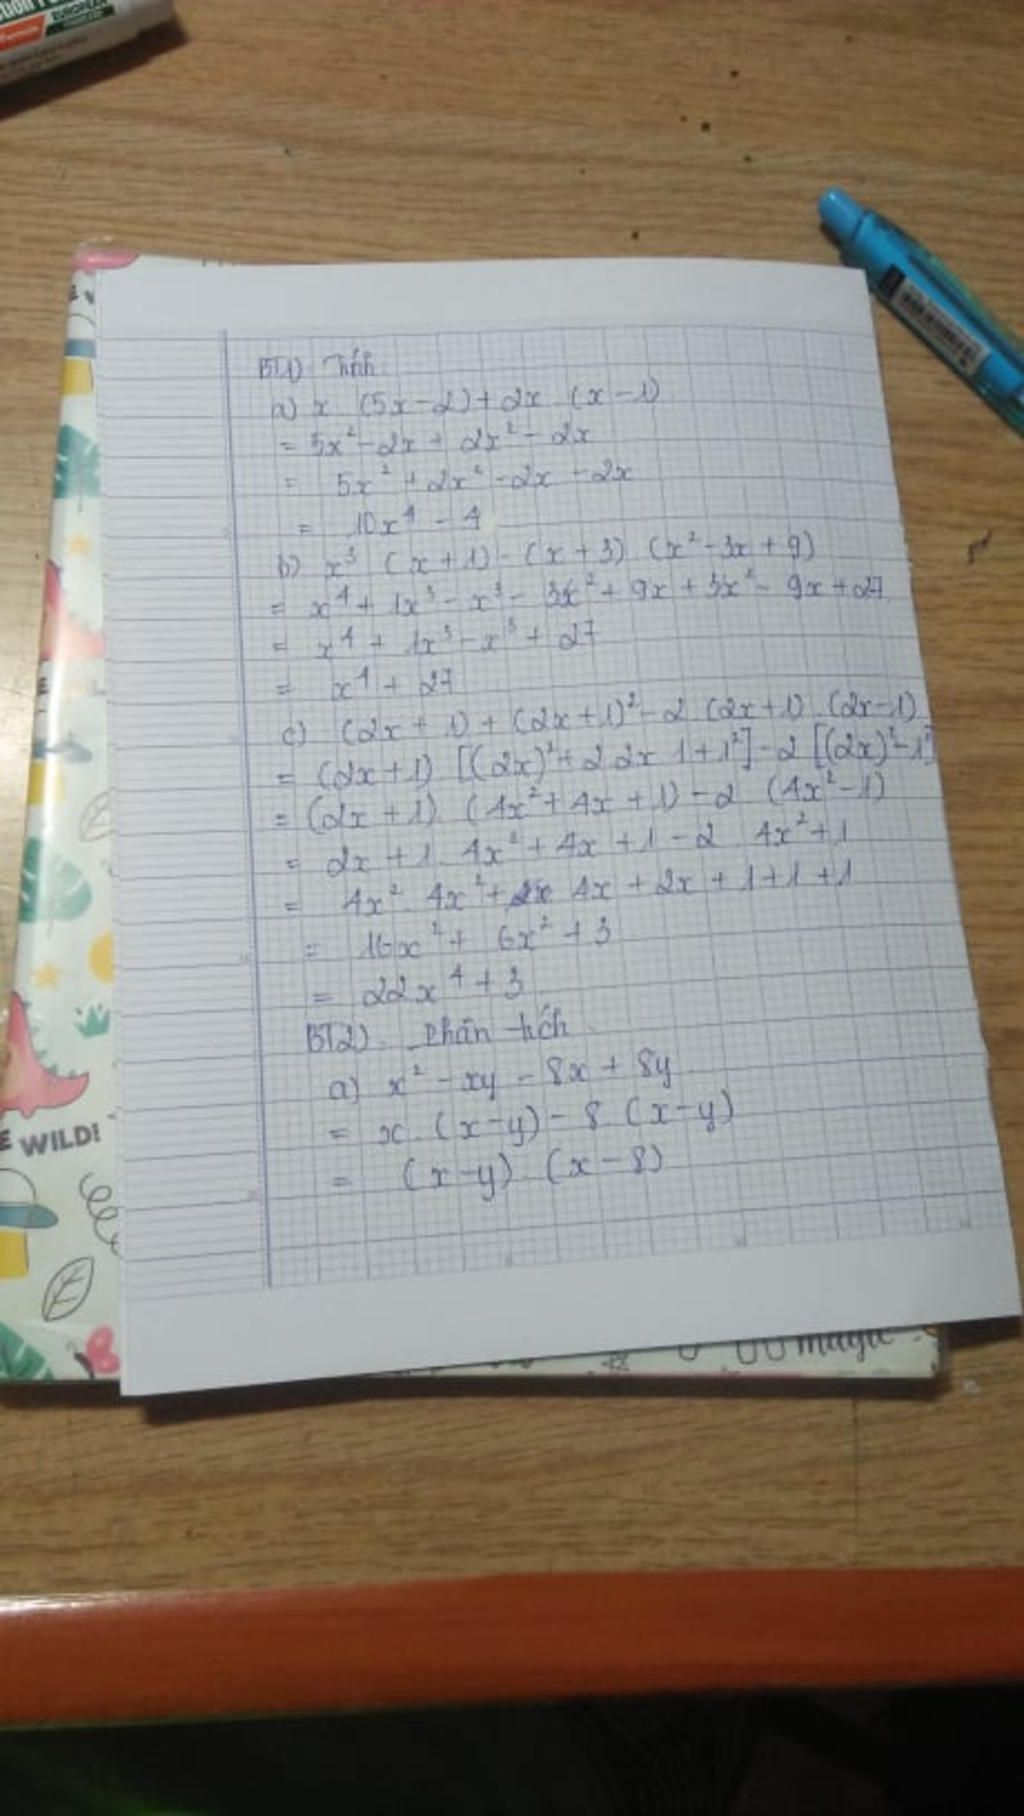 BT1) Tính
a) x (5x-2) + 2x (x-1)
= 5x² - 2x + 2x² - 2x
= 5x² + 2x² - 2x - 2x
= 10x⁴ - 4
b) x³ (x+1) - (x+3) (x² - 3x + 9)
= x⁴ + 1x³ - x³ - 3x² + 9x + 3x² - 9x + 27
= x⁴ + 1x³ - x³ + 27
= x⁴ + 27
c) (2x+1) + (2x+1)² - 2 (2x+1) (2x-1)
= (2x+1) [(2x)² + 2 2x 1 + 1²] - 2 [(2x)² - 1²]
= (2x+1) (4x² + 4x + 1) - 2 (4x² - 1)
= 2x + 1 4x² + 4x + 1 - 2 4x² + 1
= 4x² 4x² + 4x + 2x + 1 + 1 + 1
= 16x² + 6x² + 3
= 22x⁴ + 3
BT2) Phân tích
a) x² - xy - 8x + 8y
= x. (x-y) - 8 (x-y)
= (x-y) (x-8)
WILD!
magic